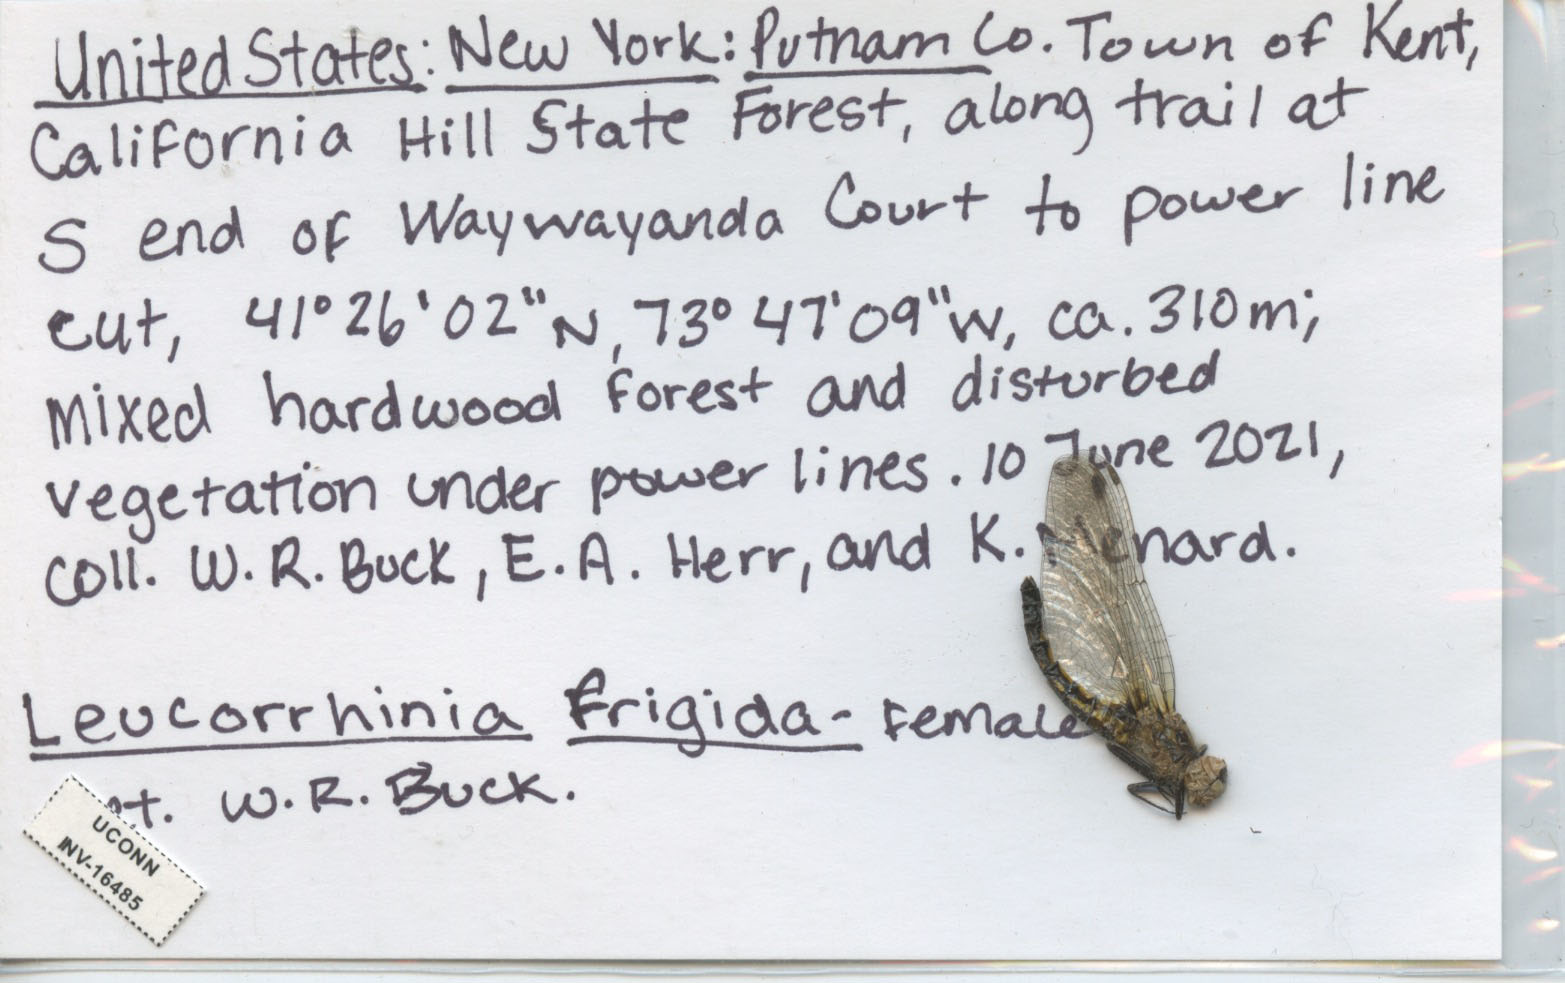 United States: New York: Putnam Co. Town of Kent,
California Hill State Forest, along trail at
S end of Waywayanda Court to power line
cut, 41° 26' 02" N, 73° 47' 09" W, ca. 310 m;
mixed hardwood forest and disturbed
vegetation under power lines. 10 June 2021,
coll. W. R. Buck, E. A. Herr, and K. Menard.
Leucorrhinia frigida - Female
W. R. Buck.
UCONN
INV-16485